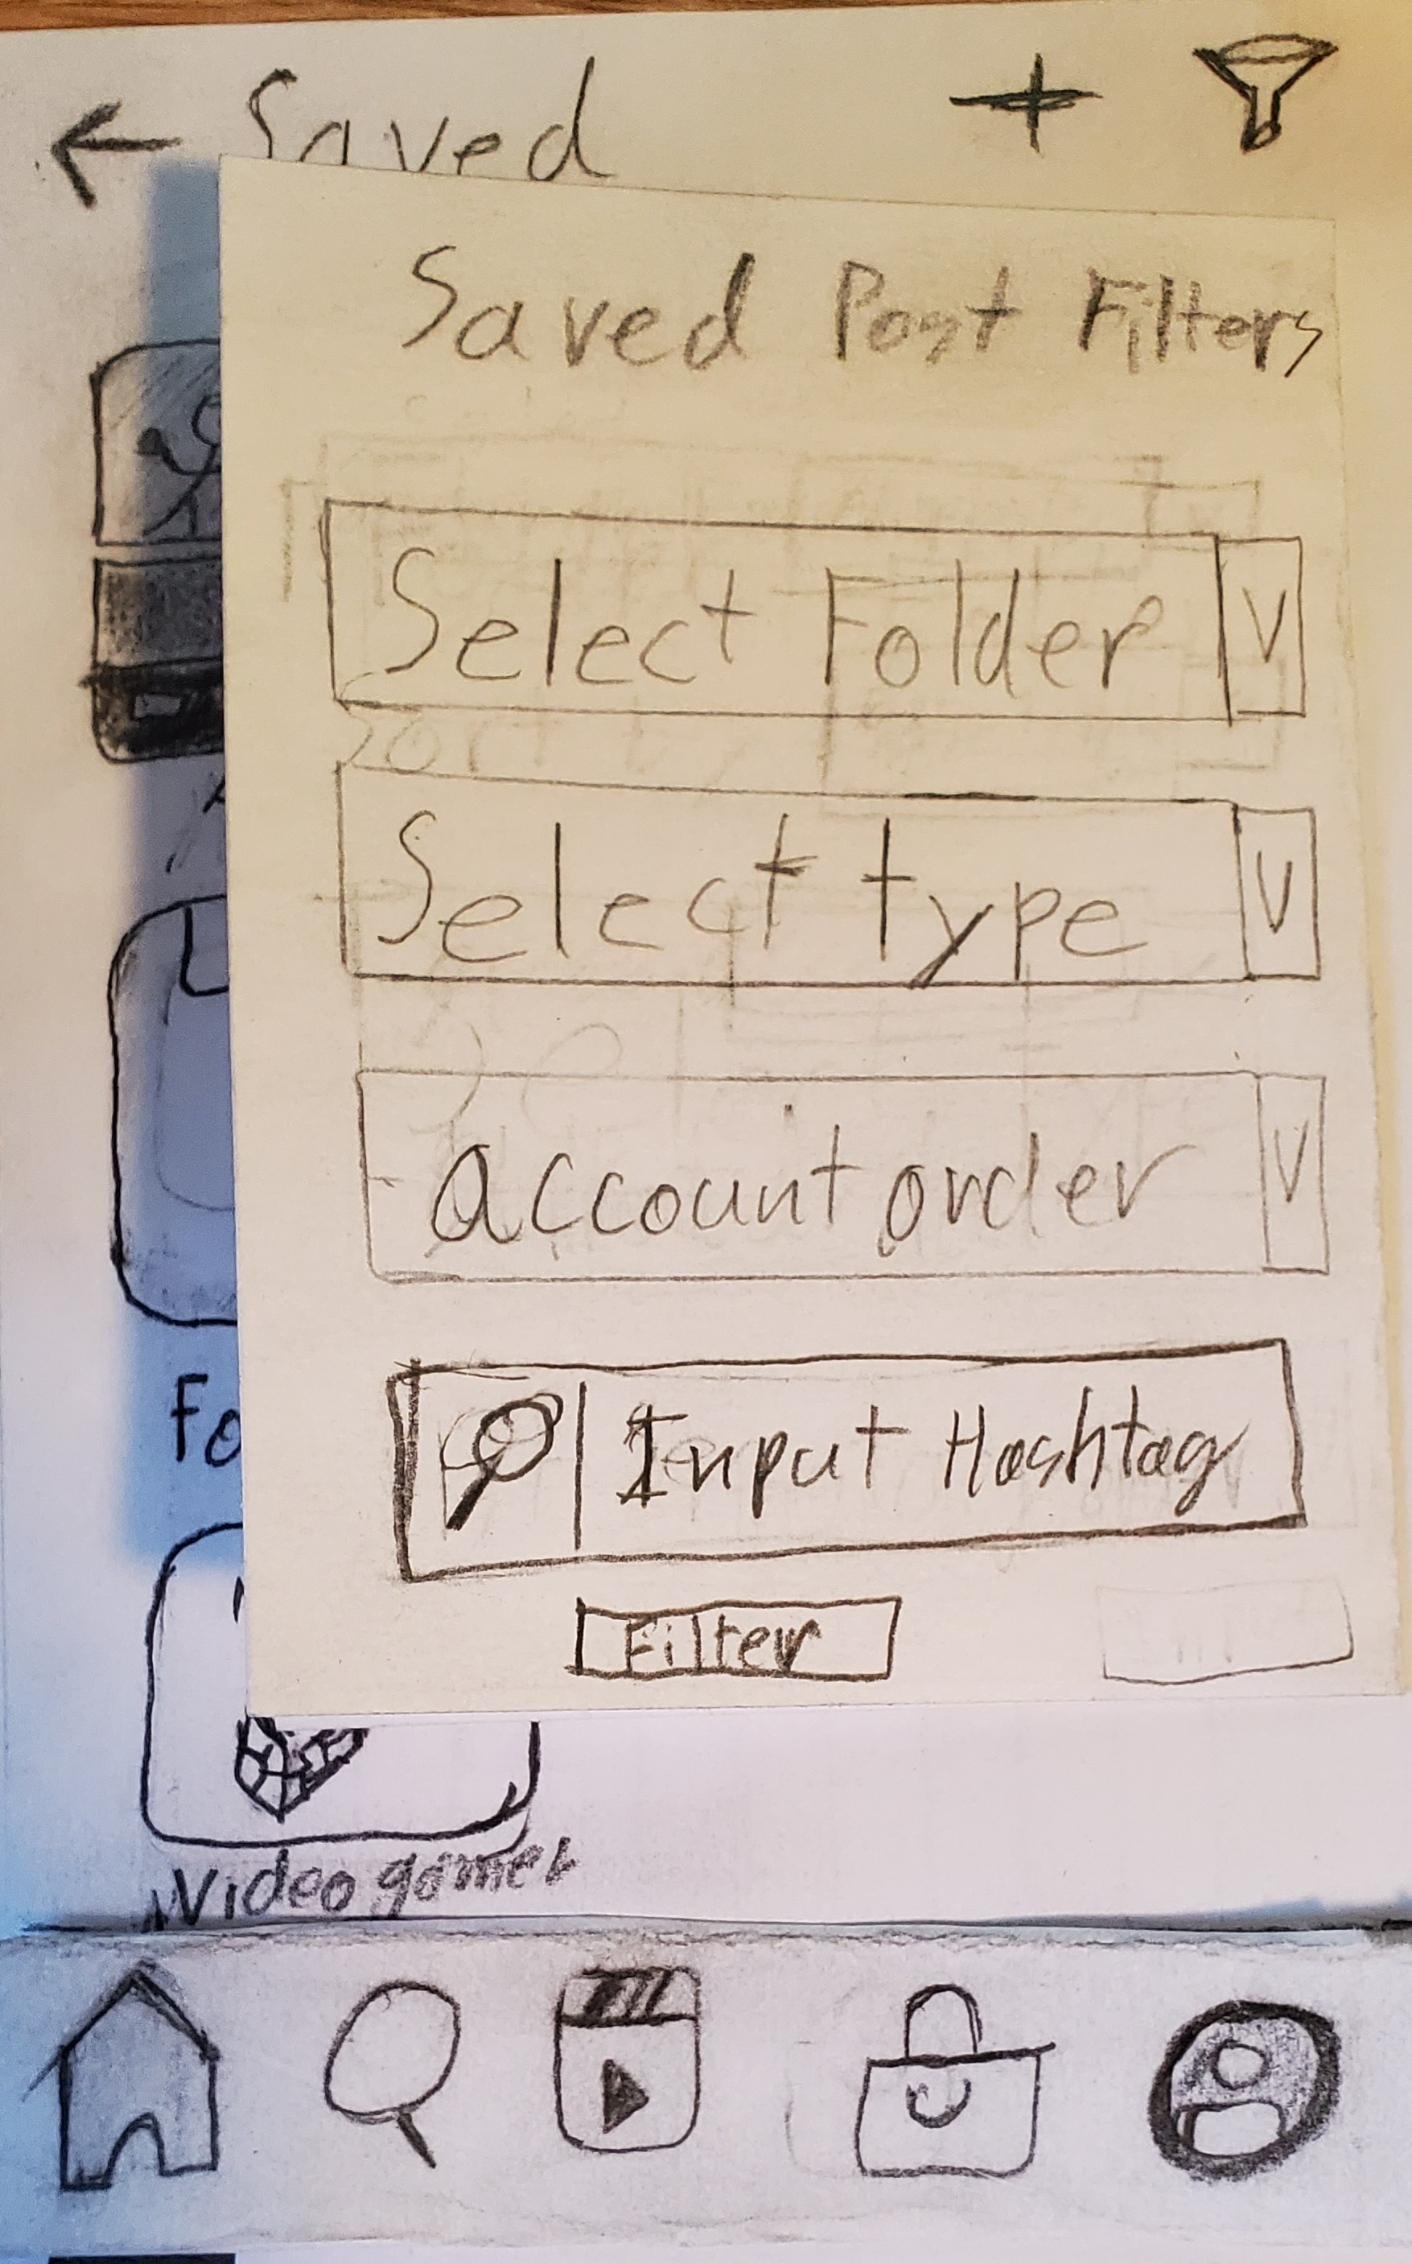 ← Saved +
Saved Post Filters
Select Folder V
Select type V
account order V
Input Hashtag
Filter
Fo
Video games